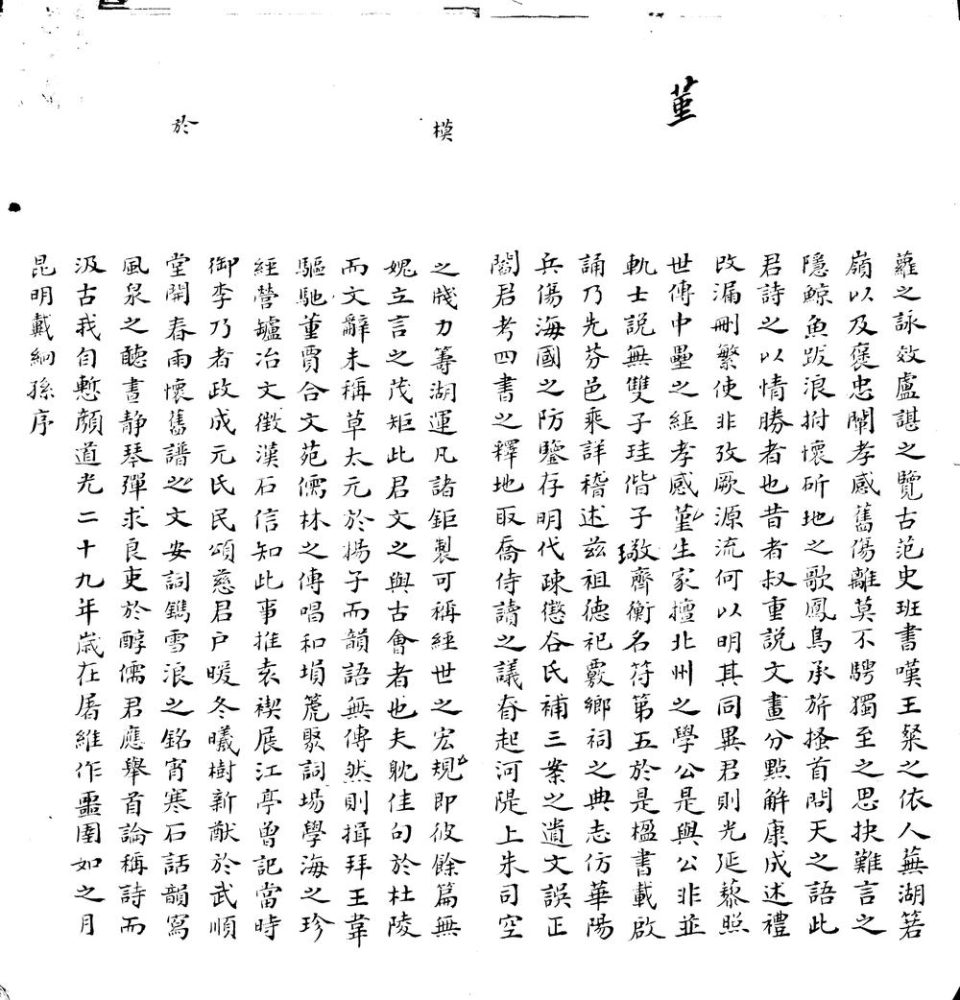 蘿之詠效盧諶之覽古范史班書嘆王粲之依人蕪湖箬
嶺以及褒忠闡孝感舊傷離莫不騁獨至之思抉難言之
隱鯨魚跋浪拊懷斫地之歌鳳鳥承旂搔首問天之語此
君詩之以情勝者也昔者叔重説文畫分點解康成述禮
改漏刪繁使非攷厥源流何以明其同異君則光延藜照
世傳中壘之經孝感堇生家擅北州之學公是與公非並
軌士説無雙子珪偕子璈齊衡名符第五於是楹書載啟
誦乃先芬邑乘詳稽述茲祖德祀覈鄉祠之典志仿華陽
兵傷海國之防鑒存明代疎懲谷氏補三案之遺文誤正
閻君考四書之釋地取喬侍讀之議眷起河隄上朱司空
之牋力籌湖運凡諸鉅製可稱經世之宏規即伩餘篇無
娓立言之茂矩此君文之與古會者也夫躭佳句於杜陵
而文辭未稱草太元於揚子而韻語無傳然則揖拜王韋
驅馳董賈合文苑儒林之傳唱和塤箎聚詞場學海之珍
經營罏冶文徵漢石信知此事推袁禊展江亭曾記當時
御李乃者政成元氏民頌慈君户暖冬曦樹新猷於武順
堂開春雨懷舊譜之文安詞鐫雪浪之銘宵寒石話韻寫
風泉之聽晝静琴彈求良吏於醇儒君應舉首論稱詩而
汲古我自慙顔道光二十九年嵗在屠維作噩圉如之月
昆明戴絅孫序
堇
模
於